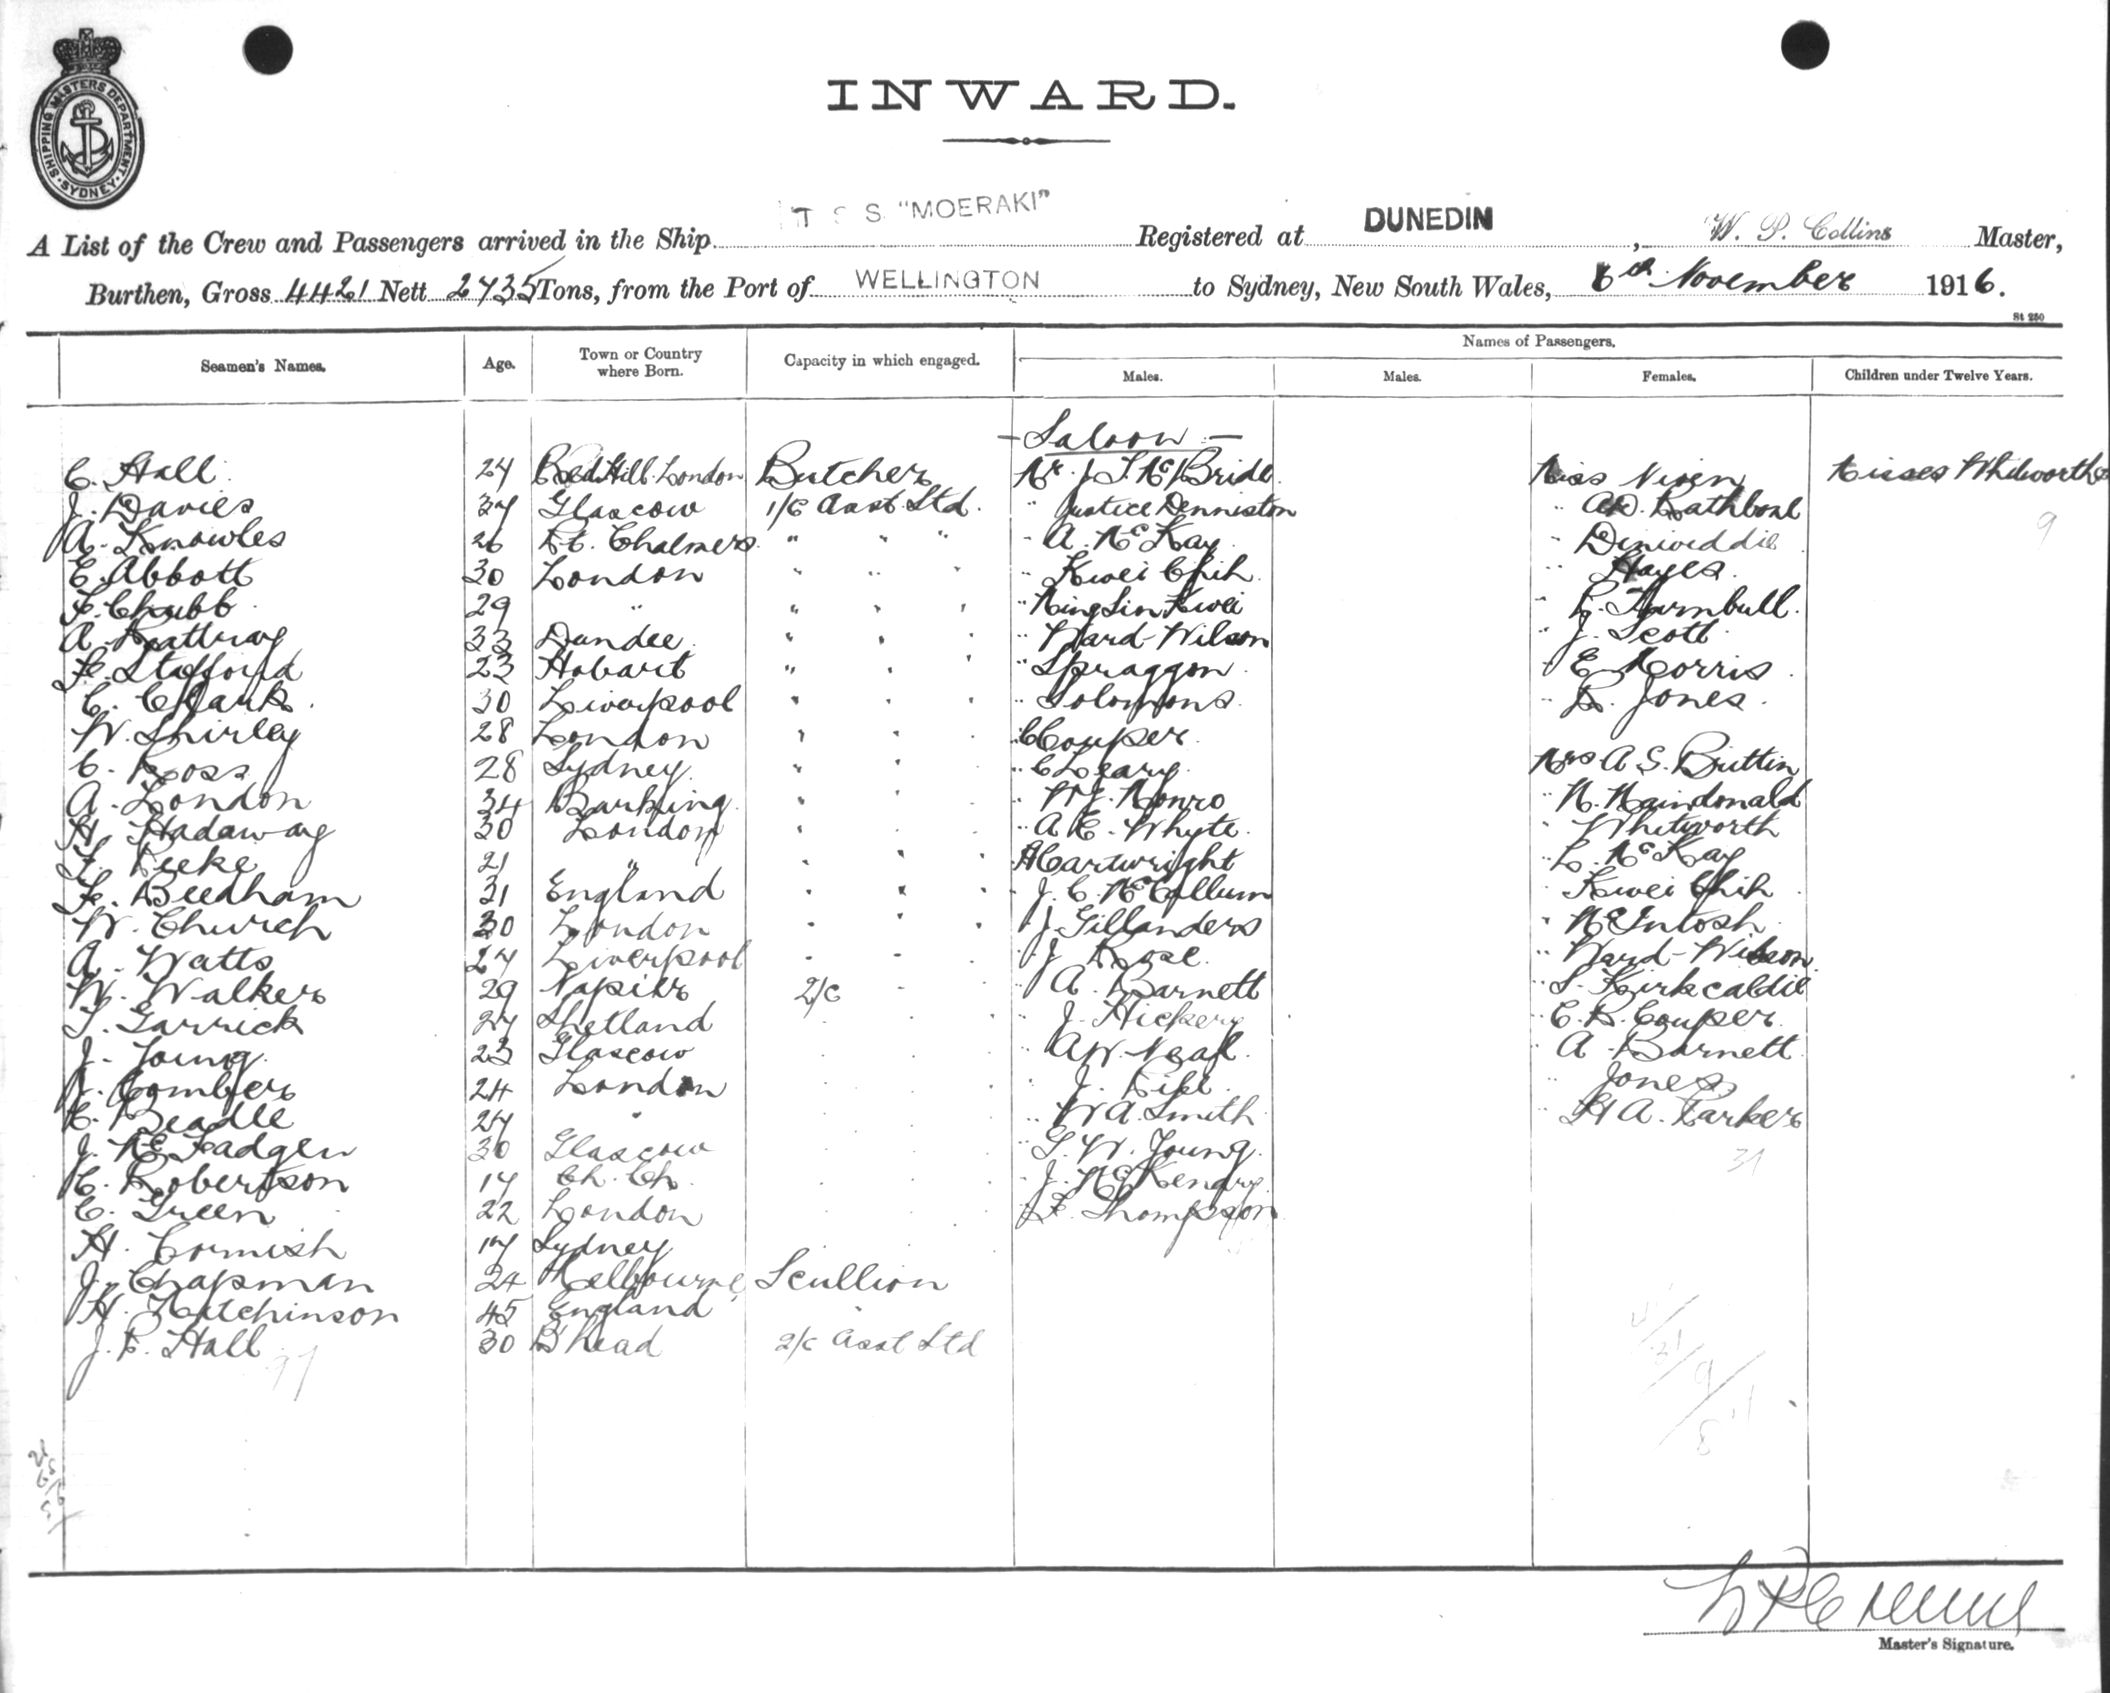 SHIPPING MASTERS DEPARTMENT · SYDNEY ·
INWARD.
A List of the Crew and Passengers arrived in the Ship T S S "MOERAKI" Registered at DUNEDIN, W. P. Collins Master,
Burthen, Gross 4421 Nett 2735 Tons, from the Port of WELLINGTON to Sydney, New South Wales, 6th November 1916.
St 250
Seamen's Names. Age. Town or Country where Born. Capacity in which engaged. Names of Passengers.
Males. Males. Females. Children under Twelve Years.
- Saloon -
C. Hall 24 Red Hill London Butcher Mr. J. S. McBride Miss Niven Misses Whitworth
J. Davies 37 Glascow 1/C Asst Std. " Justice Denniston " A.D. Rathbone 9
A. Knowles 26 Pt. Chalmers " " " " A. McKay " Dinwiddie
E. Abbott 30 London " " " " Kwei Chih " Hayes
F. Chubb 29 " " " " " Ming Lin Kwei " R. Turnbull
A. Rattray 33 Dundee " " " " Ward-Wilson " J. Scott
F. Stafford 23 Hobart " " " " Spraggon " E Morris
C. Clark 30 Liverpool " " " " Solomons " R. Jones
W. Shirley 28 London " " " C Couper
C. Ross 28 Sydney " " " C Leary Mrs A S. Brittin
A. London 34 Barking " " " Monro " N. Maindonald
H. Hadaway 30 London " " " " A E. Whyte " Whitworth
F. Peeke 21 " " " " H Cartwright " L. McKay
F. Beedham 31 England " " " " J. C. McCallum " Kwei Chih
W. Church 30 London " " " " J. Gillanders " McIntosh
A. Watts 27 Liverpool " " " J Rose " Ward-Wilson
W. Walker 29 Napier 2/C " " A. Barnett " S. Kirkcaldie
T. Garrick 27 Shetland " " " " J. Hickery " C. R. Couper
J. Young 23 Glascow " " " " A W. Neal " A Barnett
Comber 24 London " " " " J. " Jones
C. Beadle 27 " " " " W A. Smith " H A. Parker
J. McFadgen 30 Glascow " " " G. W. Young 31
C. Robertson 17 Ch. Ch. " " " " J. McKendry
C. Green 22 London " " " " F. Thompson
H. Cornish 17 Sydney " " "
J. Chapman 24 Melbourne Scullion
H. Hutchinson 45 England "
J. P. Hall 30 B'head 2/C Asst Std
Master's Signature.